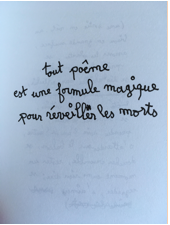 tout poême
est une formule magique
pour réveiller les morts